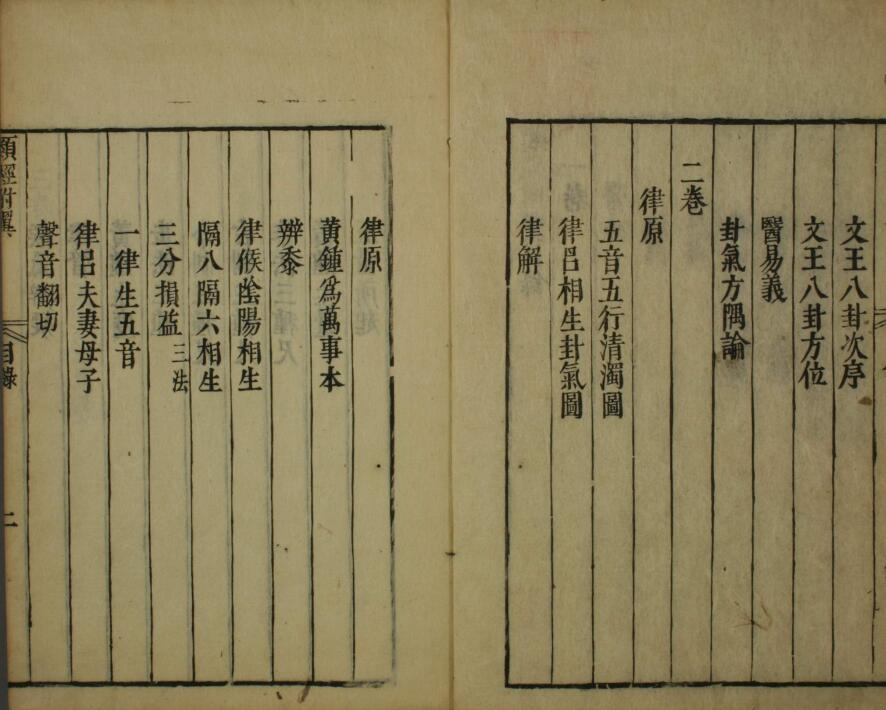 文王八卦次序
文王八卦方位
醫易義
卦氣方隅論
二卷
律原
五音五行清濁圖
律呂相生卦氣圖
律解
律原
黃鍾爲萬事本
辨黍
律候陰陽相生
隔八隔六相生
三分損益 三法
一律生五音
律呂夫妻母子
聲音翻切
類經附翼 目錄 二